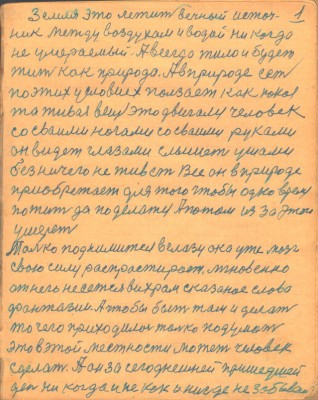 Земля это летит вечный источ- 1
ник между воздухом и водой ни когда
не умераемый. А всегда жило и будет
жит как природа. А в природе сет
по этих условиях ползает как
та живая вещ Это двигали человек
со своими ногами со своими руками
он видет глазами слышет ушами
без ничего не живет Все он в природе
приобретает для того чтобы одно время
пожит да поделать А потом из за этого
умерет
Только поднимится
свою силу распрастирает, мгновенно
от него несется вихрам сказаное слова
фантазии. А чтобы быть там и делат
то чего приходилос только подумат
это в этой местности может человек
сделат. А он за сегоднешней пришедшей
ден ни когда и не как и нигде не забывай